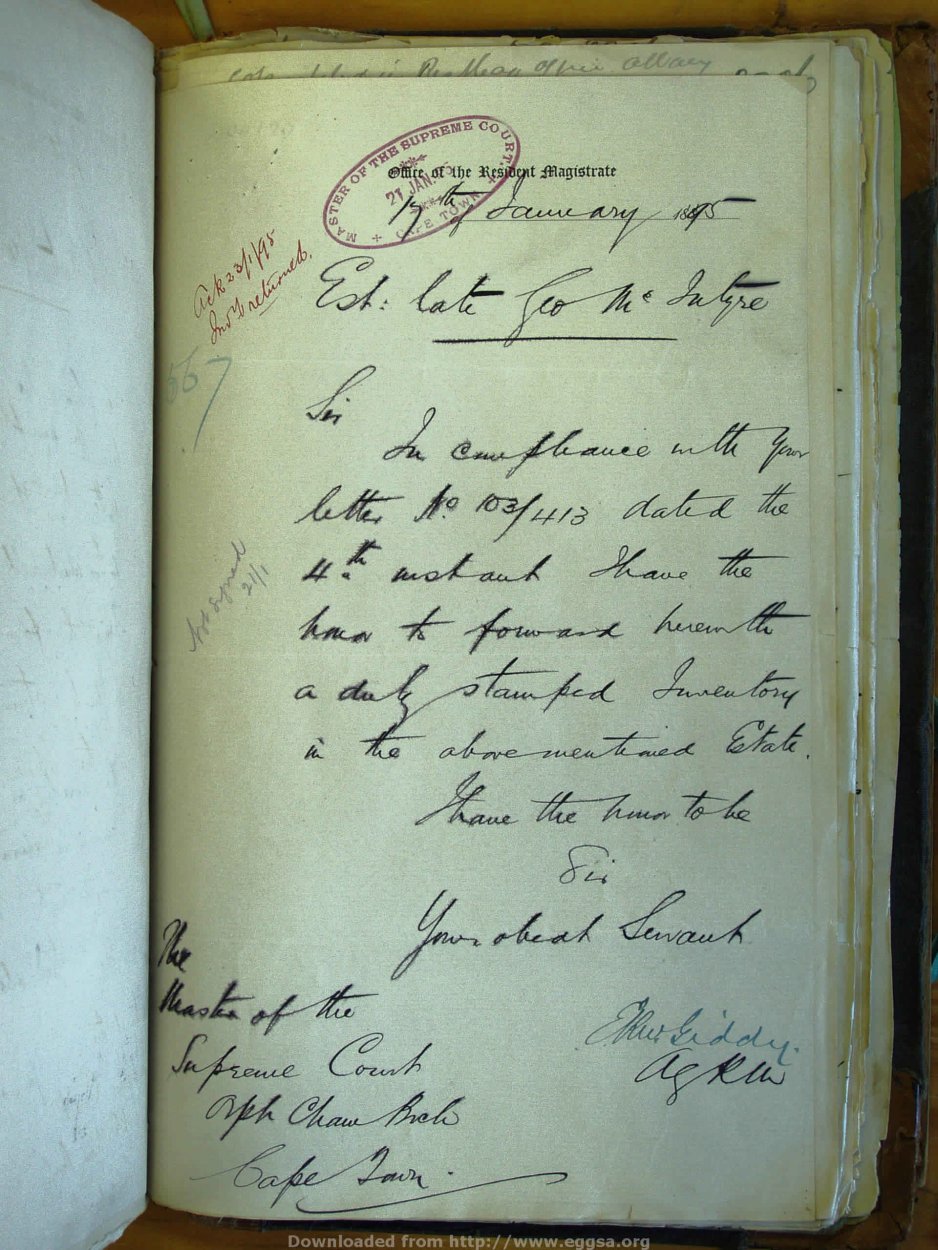 MASTER OF THE SUPREME COURT
21 JAN. 95
CAPE TOWN
Office of the Resident Magistrate
17th January 1895
Ack 23/1/95
Inv'y returned.
Est: late Geo Mc Intyre
567
Sir
In compliance with Your
letter No 103/413 dated the
4th instant I have the
Not signed
21/1
honor to forward herewith
a duly stamped Inventory
in the abovementioned Estate.
I have the honor to be
Sir
Your obedt Servant
The
Master of the
Supreme Court
Orph Cham Brch
Cape Town.
Giddy.
Ag R M
Downloaded from http://www.eggsa.org